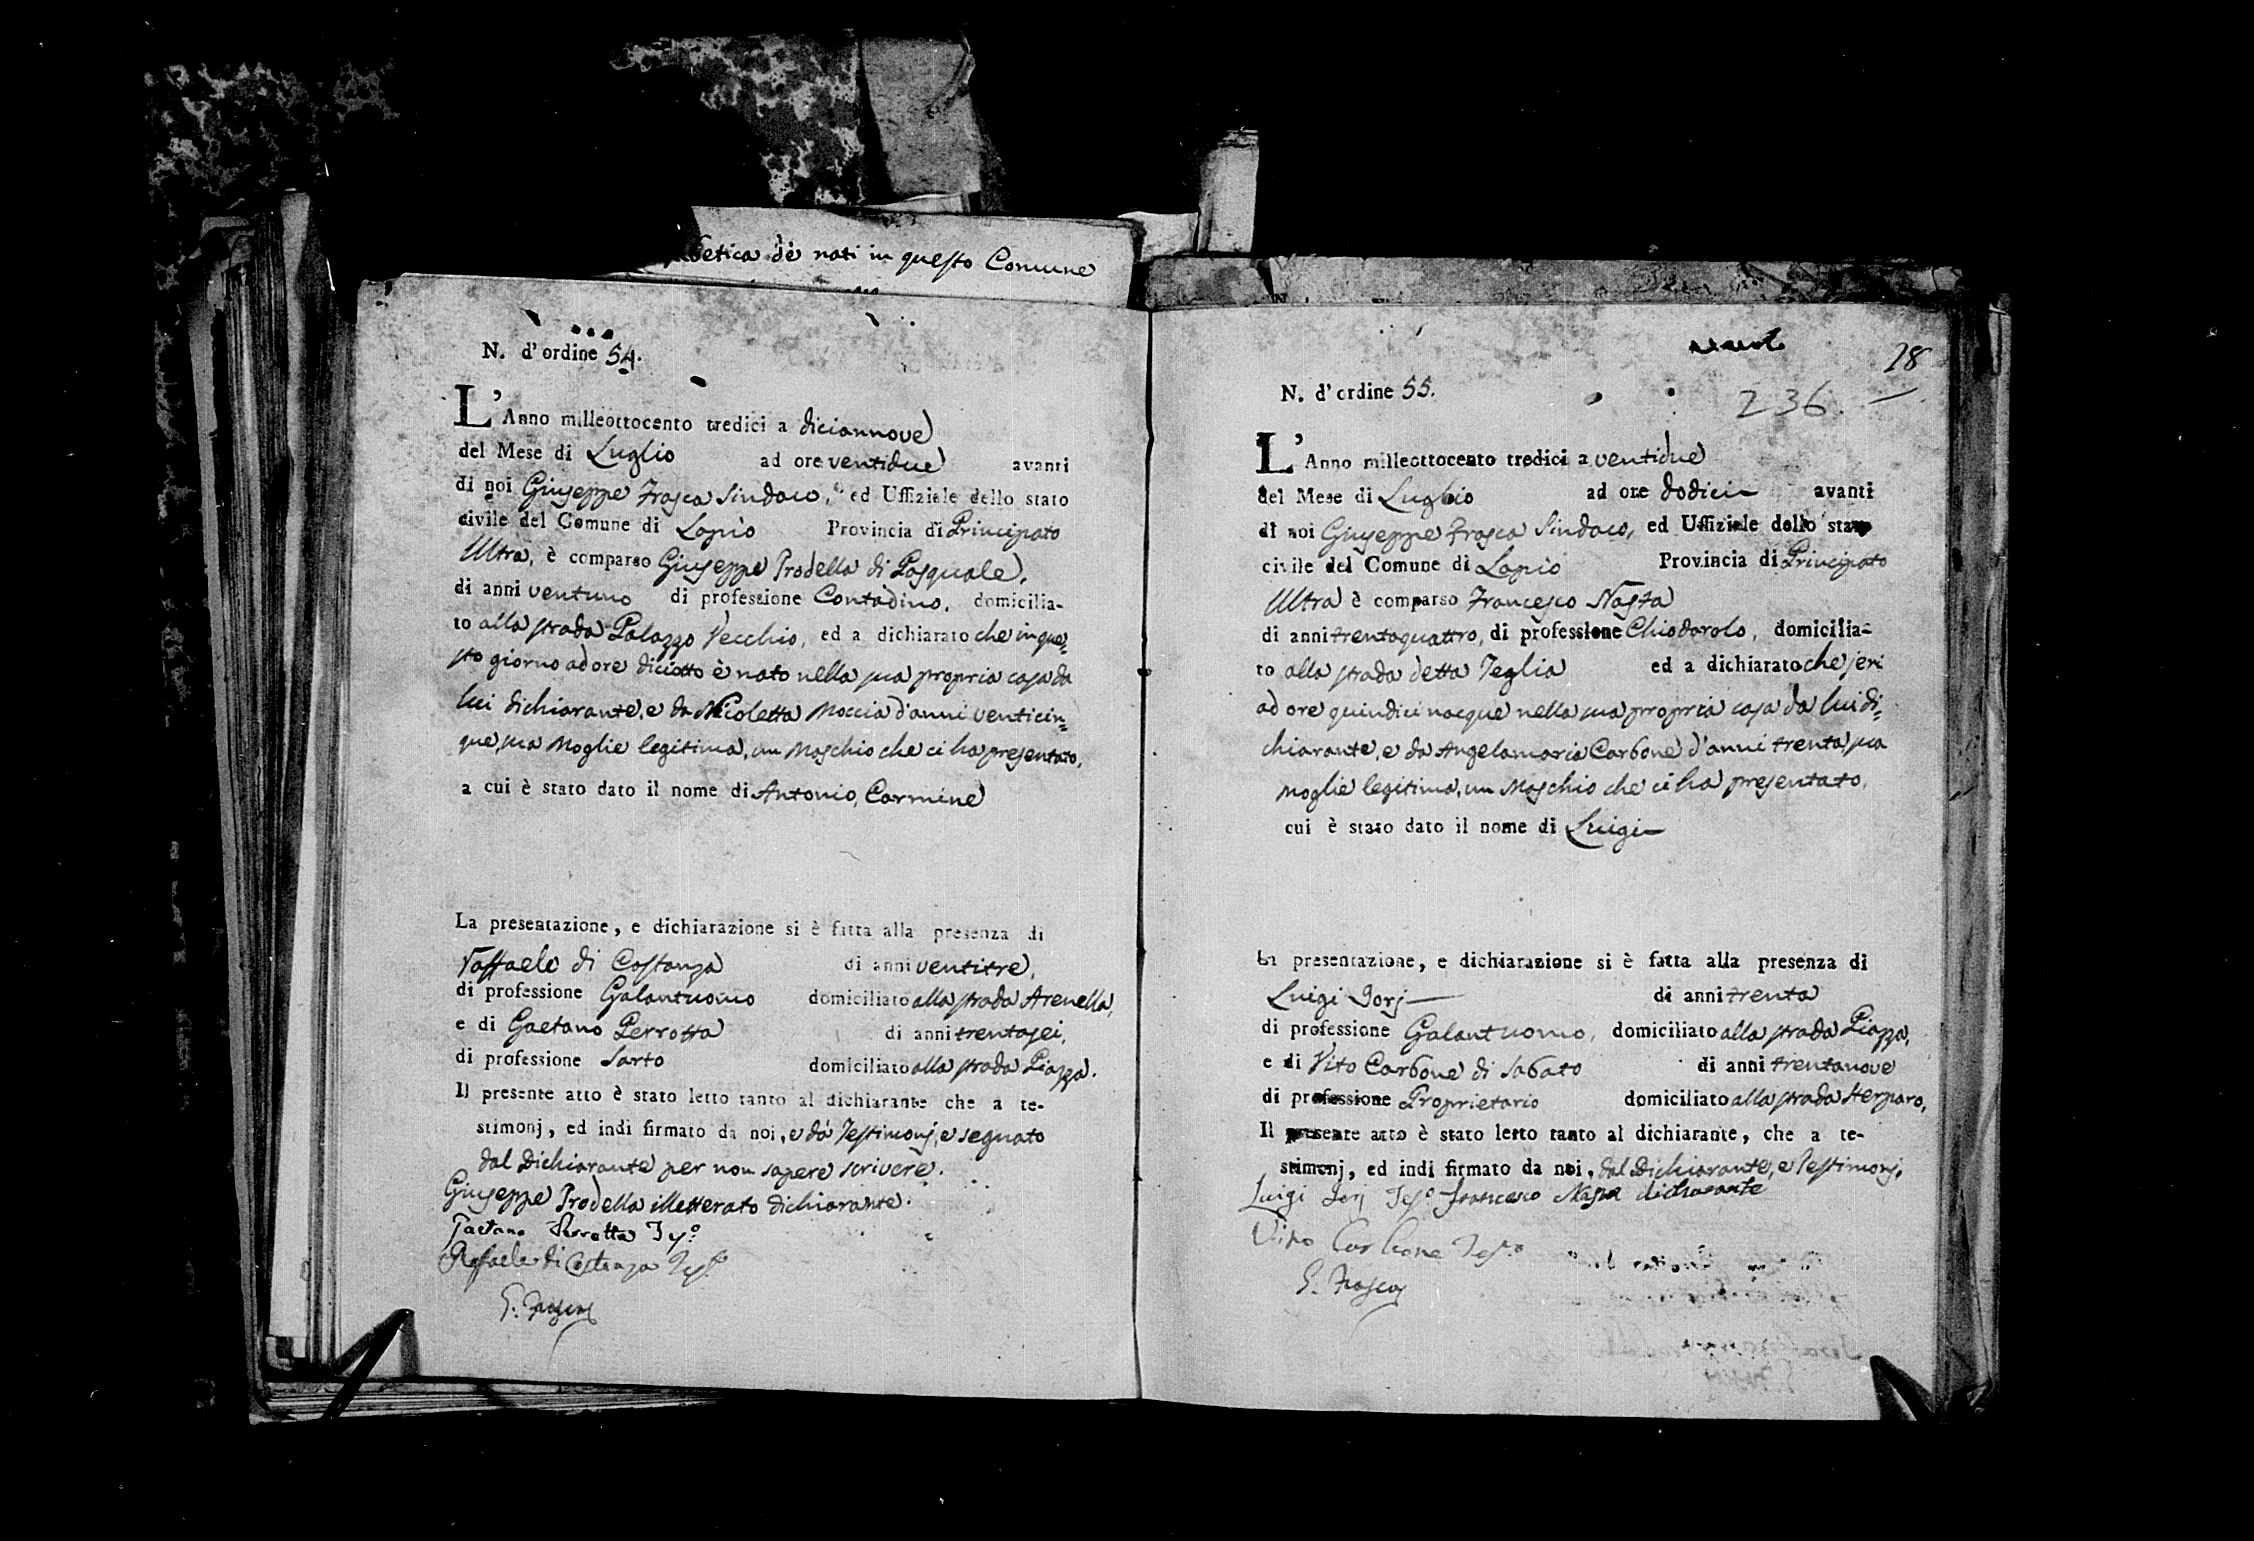 betica de' nati in questo Comune
N. d'ordine 54.
L'Anno milleottocento tredici a diciannove
del Mese di Luglio ad ore ventidue avanti
di noi Giuseppe Frasca Sindaco, ed Uffiziale dello stato
civile del Comune di Lapio Provincia di Principato
Ultra, è comparso Giuseppe Prodella di Pasquale,
di anni ventuno di professione Contadino, domicilia-
to alla strada Palazzo Vecchio, ed a dichiarato che in que=
sto giorno ad ore diciotto è nato nella sua propria casa da
lui dichiarante, e da Nicoletta Moccia d'anni venticin=
que, sua Moglie legitima, un Maschio che ci ha presentato,
a cui è stato dato il nome di Antonio, Carmine
La presentazione, e dichiarazione si è fatta alla presenza di
Raffaele di Costanza di anni ventitre,
di professione Galantuomo domiciliato alla strada Arenella,
e di Gaetano Perrotta di anni trentasei,
di professione Sarto domiciliato alla strada Piazza.
Il presente atto è stato letto tanto al dichiarante che a te-
stimonj, ed indi firmato da noi, e da' Testimonj, e segnato
dal Dichiarante per non sapere scrivere.
Giuseppe Prodella illetterato dichiarante.
Gaetano Perrotta Tes.º
Raffaele di Costanza Tes.º
G. Frasca
18
236.
N. d'ordine 55.
L'Anno milleottocento tredici a ventidue
del Mese di Luglio ad ore dodici avanti
di noi Giuseppe Frasca Sindaco, ed Uffiziale dello stato
civile del Comune di Lapio Provincia di Principato
Ultra è comparso Francesco Nasta
di anni trentaquattro, di professione Chiodarolo, domicilia-
to alla strada detta Teglia ed a dichiarato che jeri
ad ore quindici nacque nella sua propria casa da lui di=
chiarante, e da Angelamaria Carbone d'anni trenta, sua
moglie legitima, un Maschio che ci ha presentato,
cui è stato dato il nome di Luigi
La presentazione, e dichiarazione si è fatta alla presenza di
Luigi Jorj di anni trenta
di professione Galantuomo, domiciliato alla strada Piazza,
e di Vito Carbone di Sabato di anni trentanove
di professione Proprietario domiciliato alla strada Herparo,
Il presente atto è stato letto tanto al dichiarante, che a te-
stimonj, ed indi firmato da noi, dal Dichiarante, e Testimonj.
Luigi Jorj Tes.º Francesco Nasta dichiarante
Vito Carbone Tes.º
G. Frasca